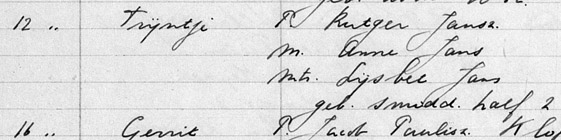 12 „ Trijntje P. Rutger Jansz.
M. Anne Jans
Mtr. Lijsbet Jans
geb. smidd. half 2
16 „ Gerrit P. Jacob Paulisz. Klo